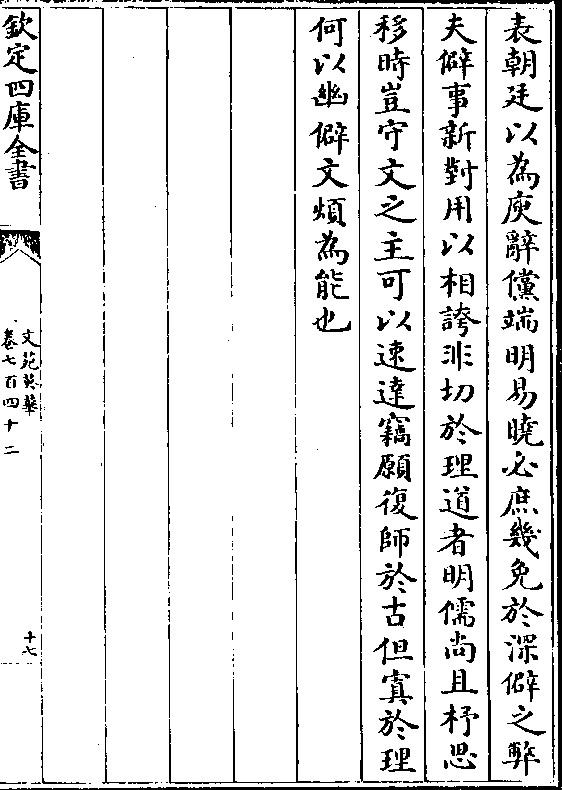 表朝廷以為庾辭儻端明易曉必庶幾免於深僻之弊
夫僻事新對用以相誇非切於理道者明儒尚且杼思
移時豈守文之主可以速達竊願復師於古但寘於理
何以幽僻文煩為能也
欽定四庫全書
文苑英華
卷七百四十二
十七